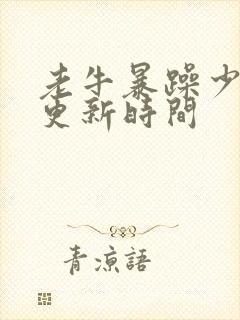 老牛暴躁少
更新時間
青涼語